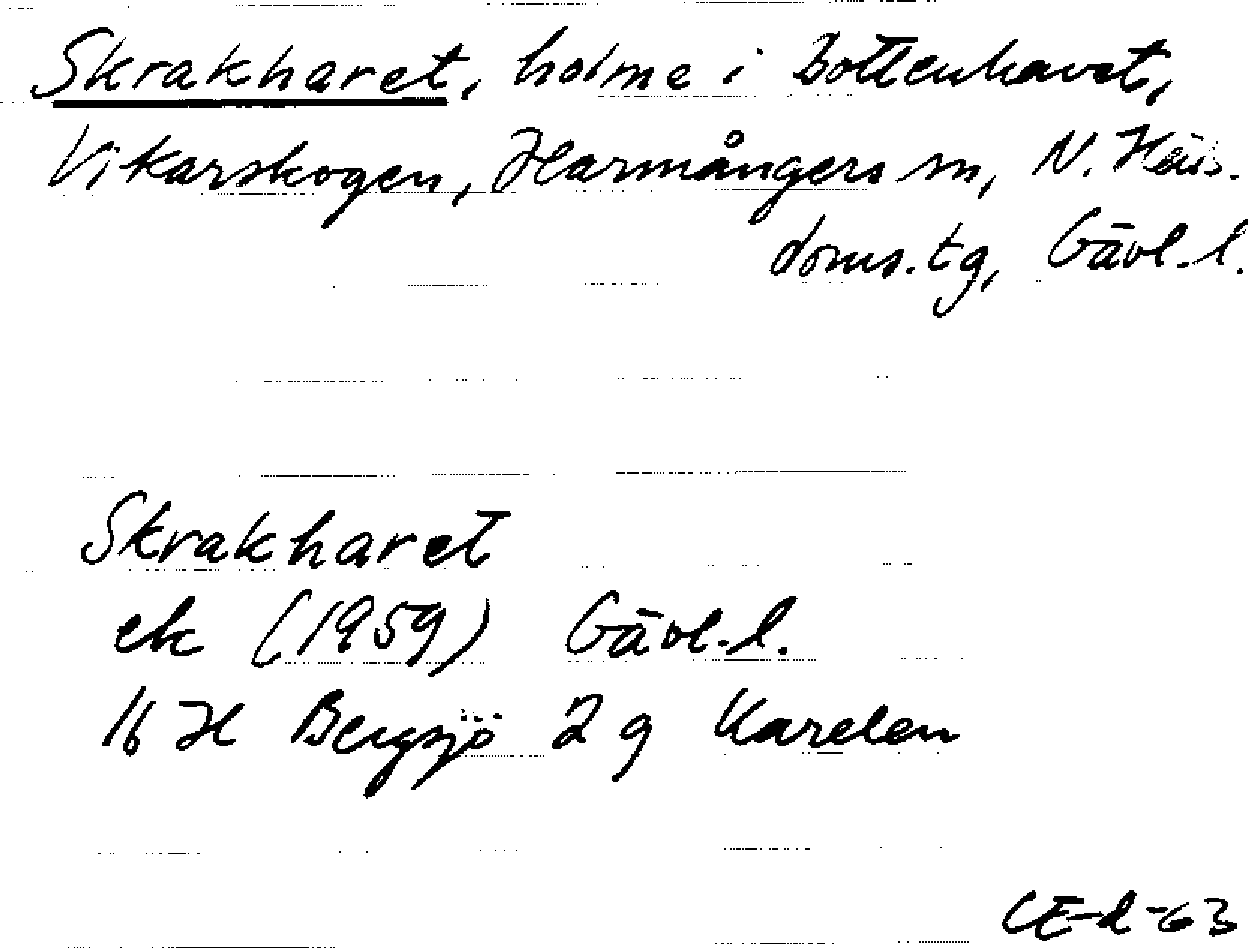 Skrakharet, holme i Bottenhavet,
Vikarskogen, Harmångers sn, N. Häls.
doms.tg, Gävl.l.
Skrakharet
ek (1959) Gävl.l.
16 H Bergsjö 2 g Karelen
CE-d-63